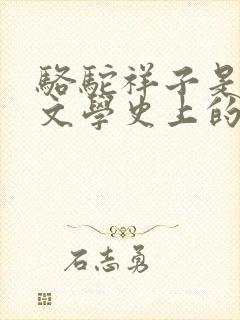 駱駝祥子是
文學史上的
石志勇